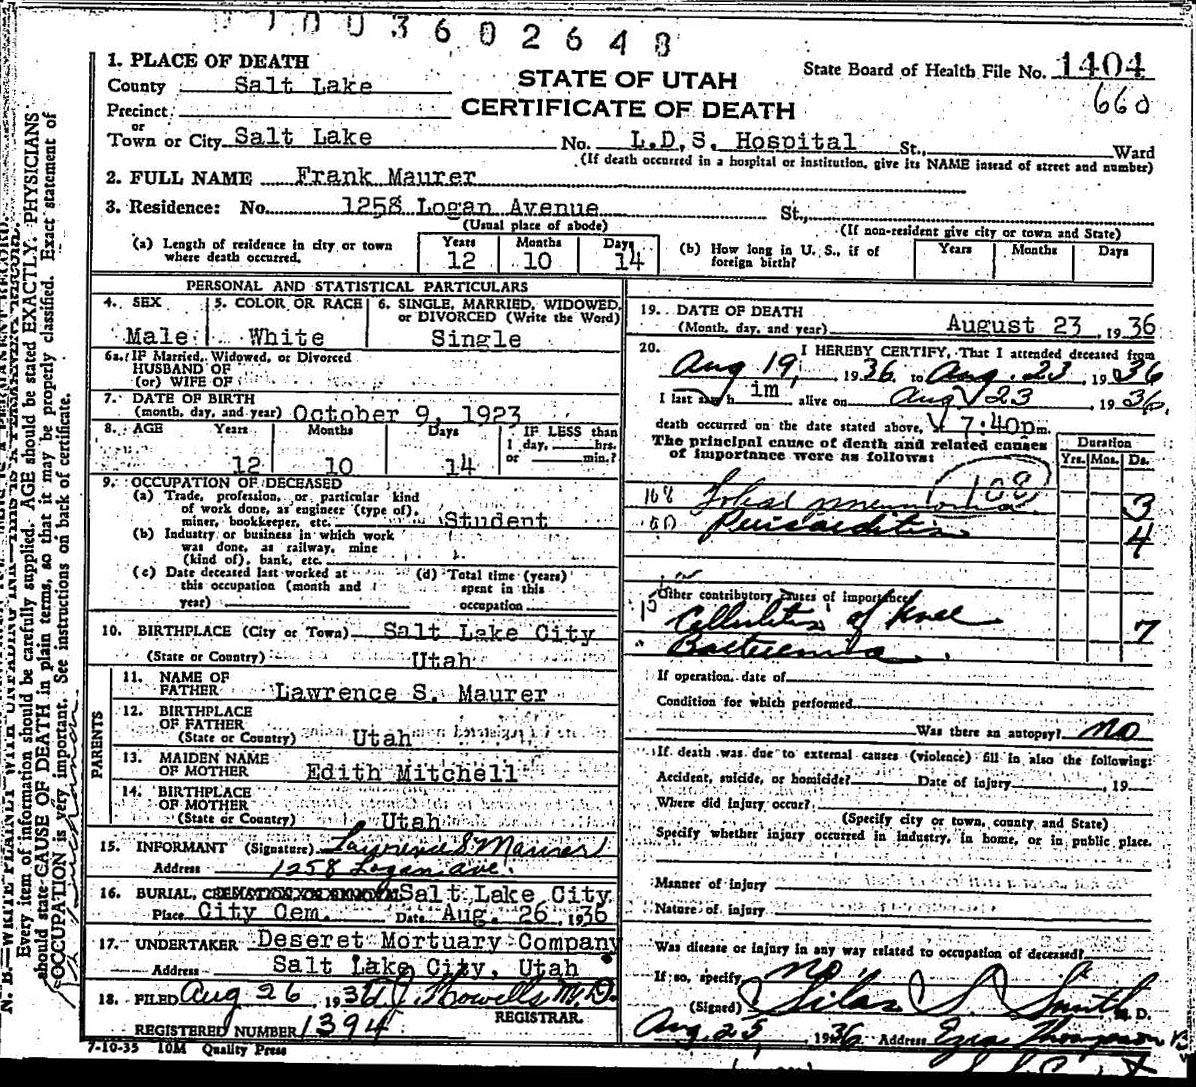 003602648
1. PLACE OF DEATH
County Salt Lake
Precinct
or
Town or City Salt Lake
STATE OF UTAH
CERTIFICATE OF DEATH
State Board of Health File No. 1404
660
No. L.D.S. Hospital St., Ward
(If death occurred in a hospital or institution, give its NAME instead of street and number)
2. FULL NAME Frank Maurer
3. Residence: No. 1258 Logan Avenue St.,
(Usual place of abode)
(If non-resident give city or town and State)
(a) Length of residence in city or town where death occurred. Years 12 Months 10 Days 14
(b) How long in U. S., if of foreign birth? Years Months Days
PERSONAL AND STATISTICAL PARTICULARS
4. SEX Male
5. COLOR OR RACE White
6. SINGLE, MARRIED, WIDOWED, or DIVORCED (Write the Word) Single
6a. IF Married, Widowed, or Divorced
HUSBAND OF
(or) WIFE OF
7. DATE OF BIRTH
(month, day, and year) October 9, 1923
8. AGE Years Months Days IF LESS than
1 day, hrs.
or min.?
12 10 14
9. OCCUPATION OF DECEASED
(a) Trade, profession, or particular kind
of work done, as engineer (type of),
miner, bookkeeper, etc. Student
(b) Industry or business in which work
was done, as railway, mine
(kind of), bank, etc.
(c) Date deceased last worked at
this occupation (month and
year)
(d) Total time (years)
spent in this
occupation
10. BIRTHPLACE (City or Town) Salt Lake City
(State or Country) Utah
PARENTS
11. NAME OF
FATHER Lawrence S. Maurer
12. BIRTHPLACE
OF FATHER
(State or Country) Utah
13. MAIDEN NAME
OF MOTHER Edith Mitchell
14. BIRTHPLACE
OF MOTHER
(State or Country) Utah
15. INFORMANT (Signature) Lawrence S Maurer
Address 1258 Logan Ave.
16. BURIAL, CREMATION OR REMOVAL Salt Lake City
Place City Cem. Date Aug. 26 1936
17. UNDERTAKER Deseret Mortuary Company
Address Salt Lake City, Utah
18. FILED Aug 26 1936 Howells M.D.
REGISTRAR.
REGISTERED NUMBER 1394
7-10-35 10M Quality Press
19. DATE OF DEATH
(Month, day, and year) August 23, 1936
20. I HEREBY CERTIFY, That I attended deceased from
Aug 19, 1936 to Aug. 23, 1936
I last saw h im alive on Aug 23 1936,
death occurred on the date stated above, 7:40p m.
The principal cause of death and related causes
of importance were as follows:
Duration
Yrs. Mos. Ds.
108
108 Lobar pneumonia 3
90 Pericarditis 4
Other contributory causes of importance
Cellulitis of knee 7
Bacteremia
If operation, date of
Condition for which performed
Was there an autopsy? no
If death was due to external causes (violence) fill in also the following:
Accident, suicide, or homicide? Date of injury , 19
Where did injury occur?
(Specify city or town, county and State)
Specify whether injury occurred in industry, in home, or in public place.
Manner of injury
Nature of injury
Was disease or injury in any way related to occupation of deceased?
If so, specify no
(Signed) Silas S Smith M. D.
Aug. 25, 1936 Address Ezra Thompson
N. B.—WRITE PLAINLY WITH UNFADING INK—THIS IS A PERMANENT RECORD.
Every item of information should be carefully supplied. AGE should be stated EXACTLY. PHYSICIANS
should state CAUSE OF DEATH in plain terms, so that it may be properly classified. Exact statement of
OCCUPATION is very important. See instructions on back of certificate.